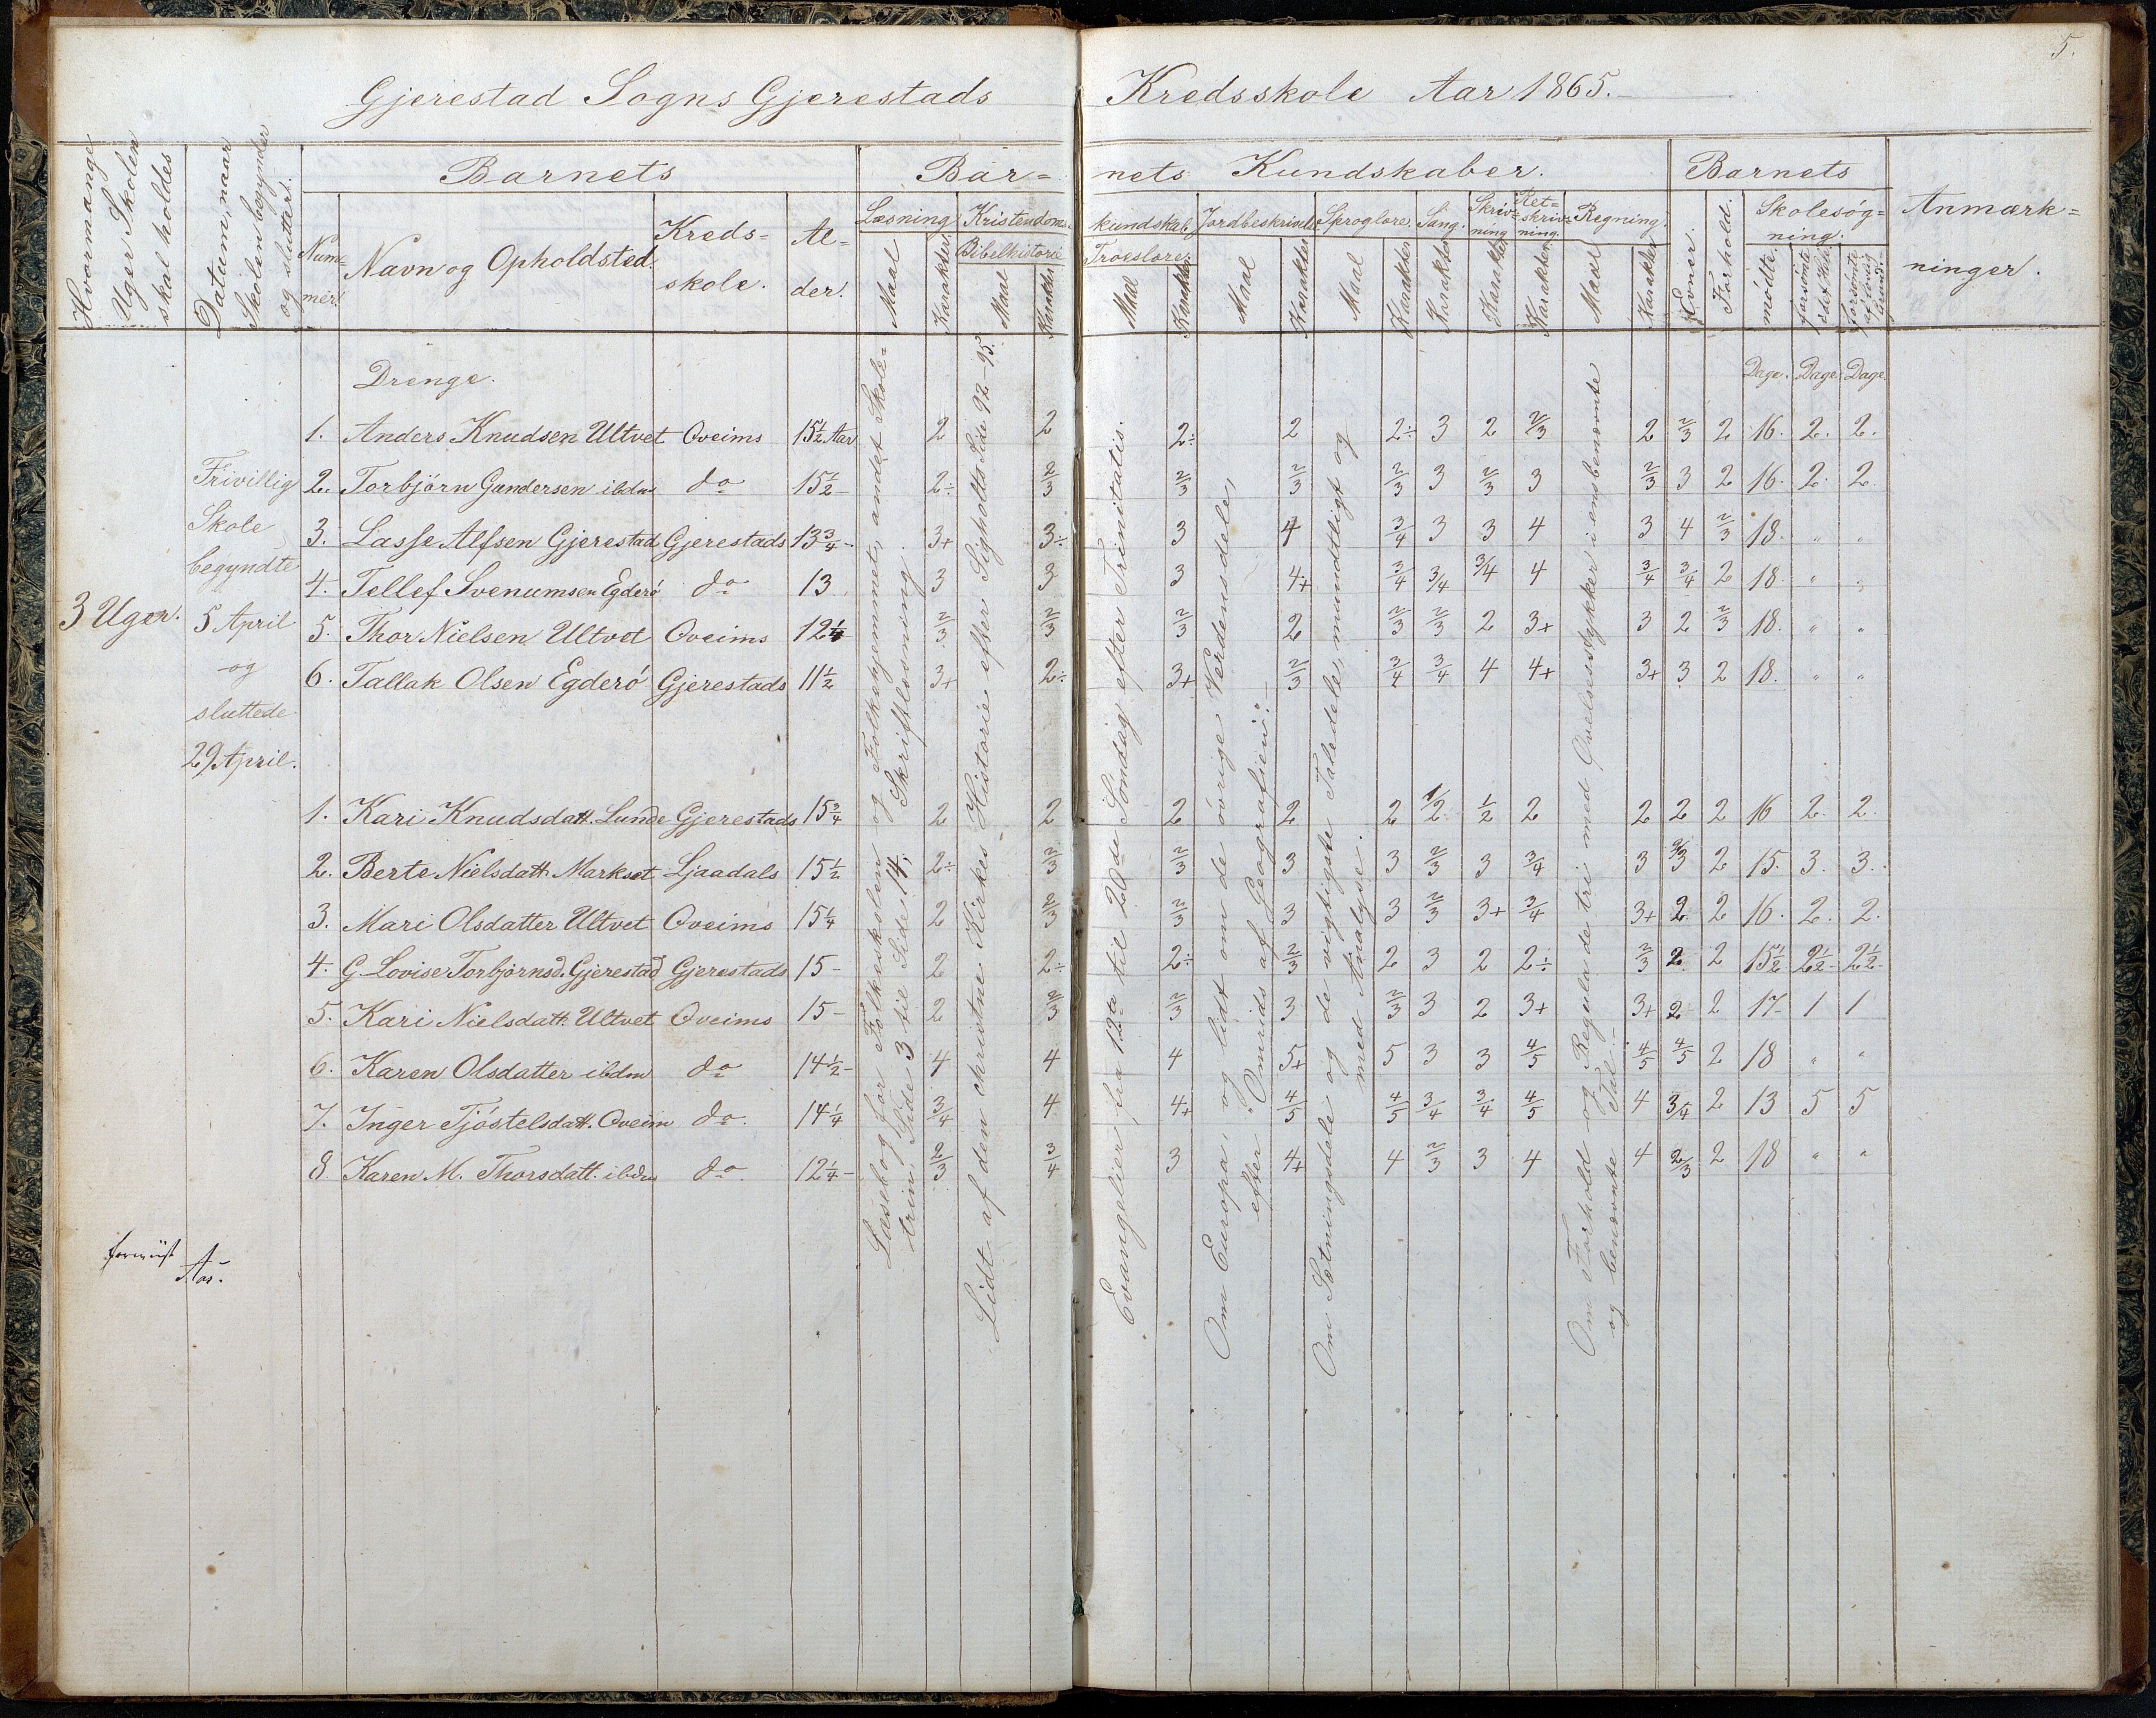 5.
Gjerestad Sogns Gjerestads Kredsskole Aar 1865.
Hvormange Uger Skolen skal holdes
Datum, naar Skolen begynder og sluttet.
Barnets
Num-mer.
Navn og Opholdsted.
Kreds-skole.
Al-der.
Bar-nets Kundskaber.
Læsning
Maal
Karakter
Kristendoms-kundskab.
Bibelhistorie
Maal
Karakter
Troeslære.
Maal
Karakter
Jordbeskrivelse
Maal
Karakter
Sproglære.
Maal
Karakter
Sang.
Karakter
Skriv-ning
Karakter
Ret-skriv-ning.
Karakter
Regning.
Maal
Karakter
Barnets
Evner.
Forhold.
Skolesøg-ning.
mödte
forsömte i det Hele
forsömte af lovlig Grund.
Anmærk-ninger.
3 Uger.
Frivillig
Skole
begyndte
5 April
og
sluttede
29 April.
Drenge.
Dage. Dage Dage.
1. Anders Knudsen Ultvet Oveims 15½ Aar 2 2 2÷ 2 2÷ 3 2 2/3 2 2/3 2 16. 2. 2.
2. Torbjörn Gundersen ibdm do 15½ 2÷ 2/3 2/3 2/3 2/3 3 2/3 3 2/3 3 2 16. 2. 2.
3. Lasse Alfsen Gjerestad Gjerestads 13¾ 3+ 3÷ 3 4 3/4 3 3 4 3 4 2/3 18. " "
4. Tellef Svenumsen Egderö do 13 3 3 3 4+ 3/4 3/4 3/4 4 3/4 3/4 2 18. " "
5. Thor Nielsen Ultvet Oveims 12¼ 2/3 2/3 2/3 2 2/3 2/3 2 3+ 3 2 2/3 18. " "
6. Tallak Olsen Egderö Gjerestads 11½ 3+ 2÷ 3+ 2/3 3/4 3/4 4 4+ 3+ 3 2 18. " "
1. Kari Knudsdatt. Lunde Gjerestads 15¾ 2 2 2 2 2 1/2 1/2 2 2 2 2 16 2. 2.
2. Berte Nielsdatt. Markset Ljaadals 15½ 2÷ 2/3 2/3 3 3 2/3 3 3/4 3 2/3 2 15. 3. 3.
3. Mari Olsdatter Ultvet Oveims 15¼ 2 2/3 2/3 3 3 2/3 3+ 3/4 3+ 2 2 16. 2. 2.
4. G. Lovise Torbjörnsd. Gjerestad Gjerestads 15 - 2 2÷ 2÷ 2/3 2 3 2 2÷ 2/3 2 2 15½ 2½ 2½
5. Kari Nielsdatt. Ultvet Oveims 15 - 2 2/3 2/3 3 2/3 3 2 3+ 3+ 2 2 17 1 1
6. Karen Olsdatter ibdm do 14½ - 4 4 4 5+ 5 3 3 4/5 4/5 4/5 2 18 " "
7. Inger Tjöstelsdatt. Oveim do. 14¼ 3/4 4 4+ 4/5 4/5 3/4 3/4 4/5 4 3/4 2 13 5 5
8. Karen M. Thorsdatt. ibdm do. 12¼ - 2/3 3/4 3 4+ 4 2/3 3 4 4 2/3 2 18 " "
Læsebog for Folkeskolen og Folkehjemmet, andet Skole-
trin Side 3 til Side 14; Skriftlæsning.
Lidt af den christne Kirkes Historie efter Sigholts Side 92 - 95.
Evangelier fra 12te til 20de Söndag efter Trinitatis.
Om Europa, og lidt om de övrige Verdensdele,
efter "Omrids af Geografien".
Om Sætningsdele og de vigtigste Taledele, mundtligt og
med Analyse.
Om Forhold og Regula de tri med Övelsesstykker i eensbenævnte
og benævnte Tal.